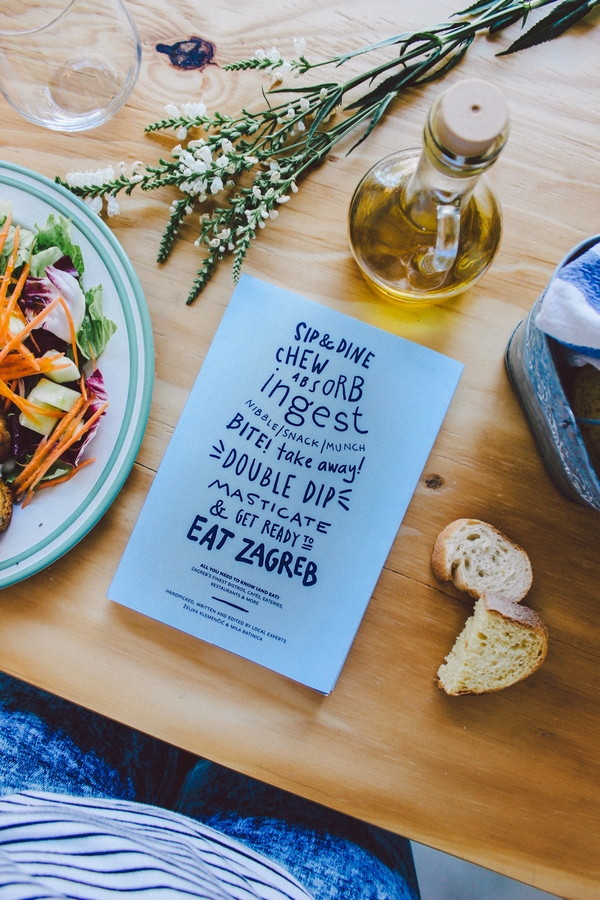 SIP & DINE
CHEW
ABSORB
ingest
NIBBLE/SNACK/MUNCH
BITE! take away!
DOUBLE DIP
MASTICATE
& GET READY TO
EAT ZAGREB
ALL YOU NEED TO KNOW (AND EAT)
ZAGREB'S FINEST BISTROS, CAFÉS, EATERIES,
RESTAURANTS & MORE
HANDPICKED, WRITTEN AND EDITED BY LOCAL EXPERTS
ŽELJKA KLEMENČIĆ & MILA BATINICA